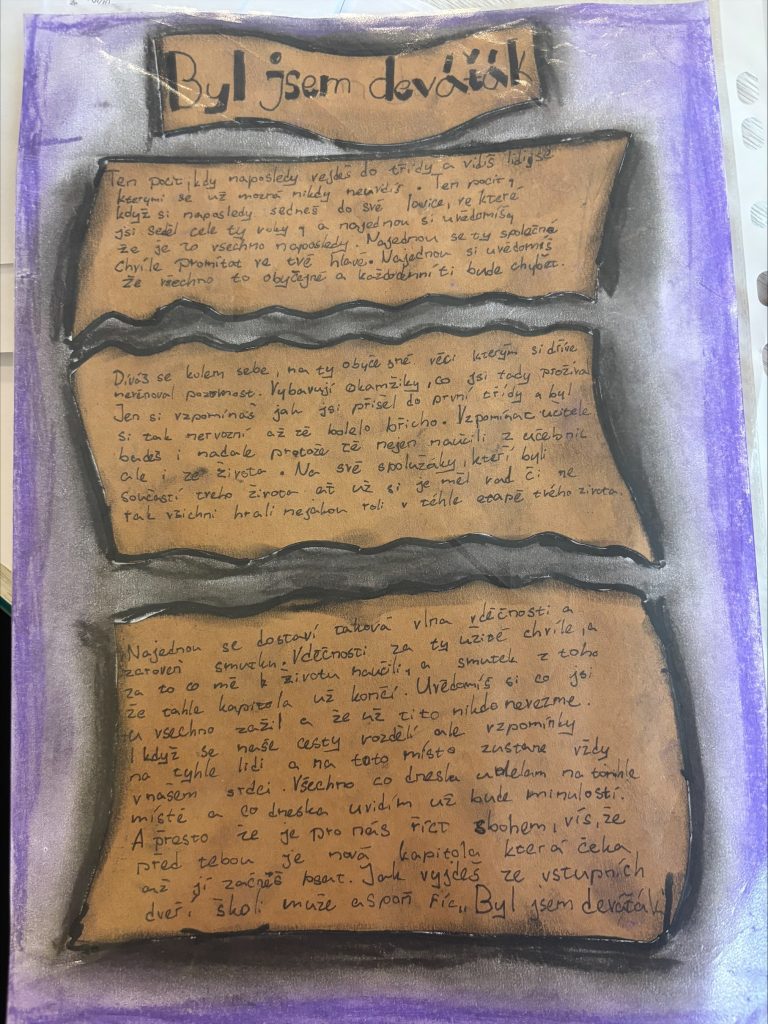 Byl jsem deváťák
Ten pocit, kdy naposledy vejdeš do třídy a vidíš lidi, se
kterými se už možná nikdy neuvidíš. Ten pocit,
když si naposledy sedneš do své lavice, ve které
jsi seděl celé ty roky, a najednou si uvědomíš,
že je to všechno naposledy. Najednou se ty společné
chvíle promítat ve tvé hlavě. Najednou si uvědomíš
že všechno to obyčejné a každodenní ti bude chybět.
Díváš se kolem sebe, na ty obyčejné věci kterým si dříve
nevěnoval pozornost. Vybavují okamžiky, co jsi tady prožíval
Jen si vzpomínáš jak jsi přišel do první třídy a byl
si tak nervozní až tě bolelo břicho. Vzpomínat učitele
budeš i nadále protože tě nejen naučili z učebnic
ale i ze života. Na své spolužáky, kteří byli
součostí tveho života ať už si je měl rád či ne
tak všichni hráli nejakou roli v téhle etapě tvého života.
Najednou se dostaví taková vlna vděčnosti a
zároveň smutku. Vděčnosti za ty užité chvíle, a
za to co mě k životu naučili, a smutek z toho
že tahle kapitola už končí. Uvědomíš si co jsi
tu všechno zažil a že už ti to nikdo nevezme.
I když se naše cesty rozdělí ale vzpomínky
na tyhle lidi a na toto místo zustane vždy
v našem srdci. Všechno co dneska udelam na tomhle
místě a co dneska uvidím už bude minulostí.
A přesto že je pro nás říct sbohem, víš, že
před tebou je nová kapitola která čeká
až jí začneš psat. Jak vyjdeš ze vstupních
dveří školi muže aspoň říc „Byl jsem deváťák"